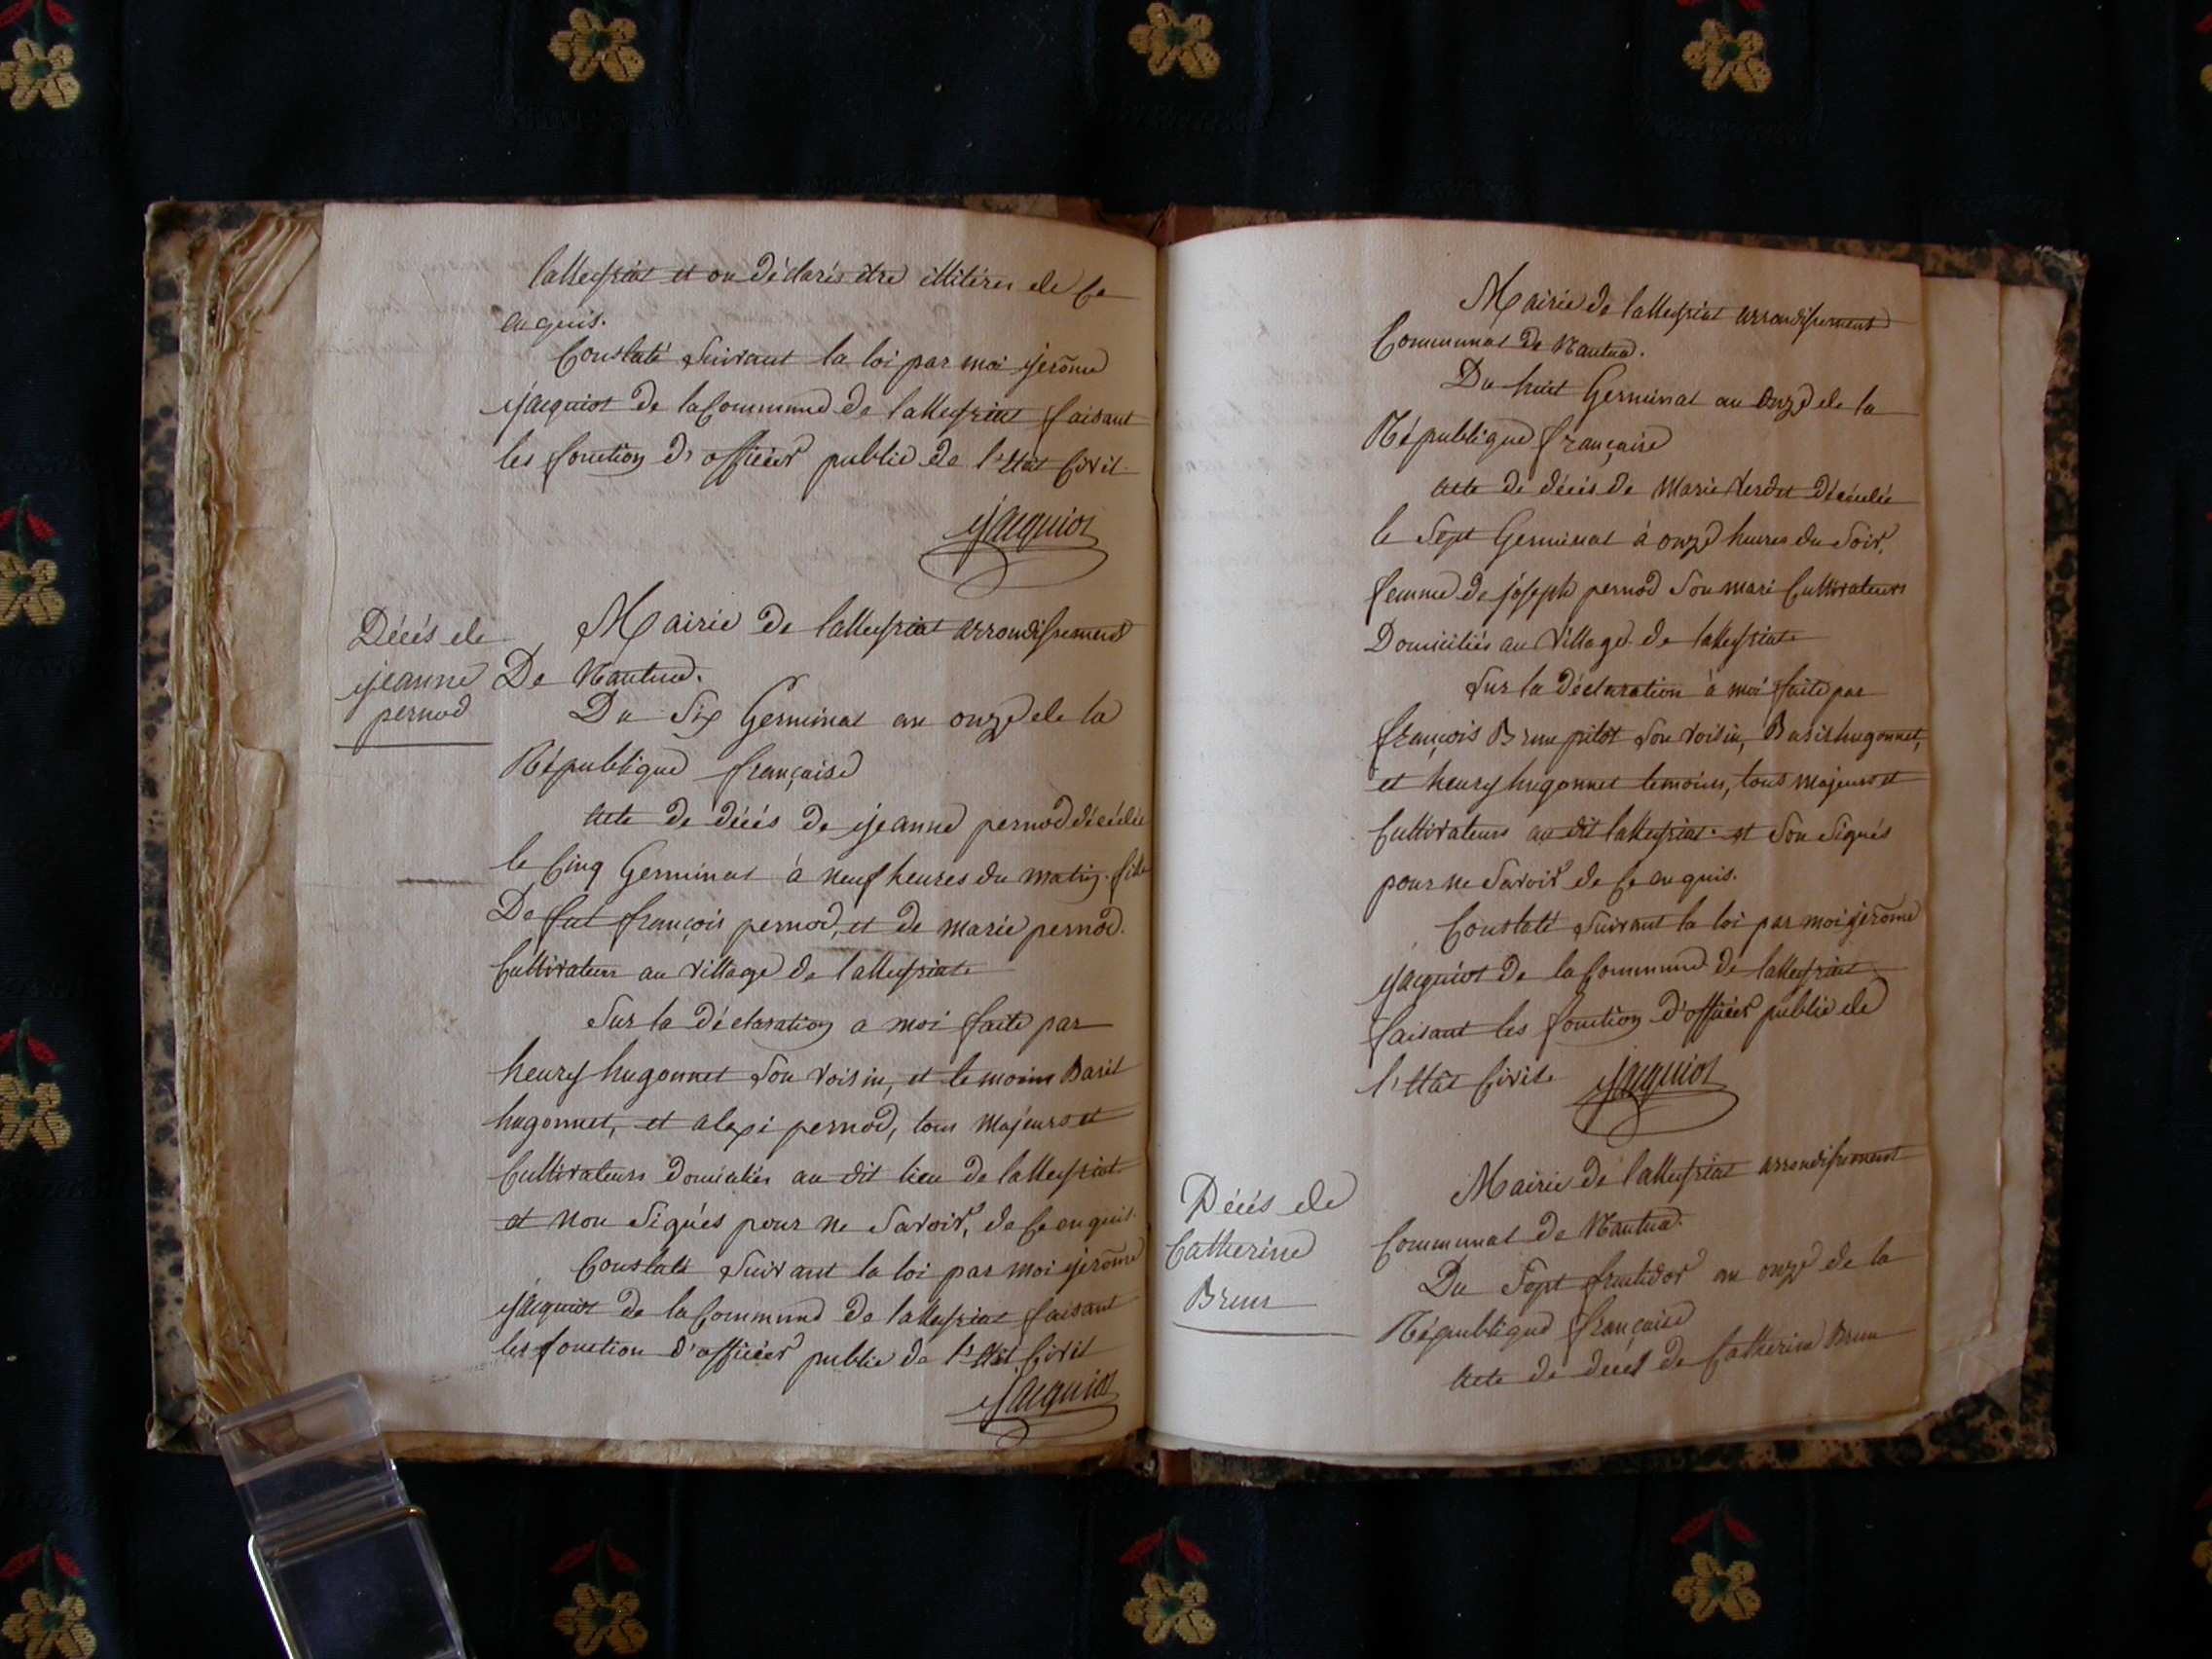 lalleyriat et on déclarés être illitérés de ce
enquis.
Constaté suivant la loi par moi jerôme
jacquiot de la Commune de lalleyriat faisant
les fonction d'officier public de l'Etat Civil.
jacquiot
Décés de
jeanne
pernod
Mairie de lalleyriat arrondissement
De Nantua.
Du Six Germinal an onze de la
République française
Acte de décés de jeanne pernod décédée
le Cinq Germinal à neuf heures du matin. fille
De fut françois pernod, et de marie pernod.
Cultivateurs au village de lalleyriat.
Sur la déclaration a moi faite par
henry hugonnet son voisin, et temoins Basil
hugonnet, et alexi pernod, tous majeurs et
Cultivateurs domiciliés au dit lieu de lalleyriat
et non signés pour ne savoir, de ce enquis.
Constaté suivant la loi par moi jerôme
jacquiot de la Commune de lalleyriat faisant
les fonction d'officier public de l'Etat Civil
jacquiot
Mairie de lalleyriat arrondissement
Communal de Nantua.
Du huit Germinal an onze de la
République française
Acte de décés de Marie Verdet décédée
le Sept Germinal à onze heures du soir,
femme de joseph pernod son mari Cultivateurs
Domiciliés au village de lalleyriat.
Sur la déclaration à moi faite par
françois Brun pilot son voisin, Basil hugonnet,
et henry hugonnet temoins, tous majeurs et
Cultivateurs au dit lalleyriat. et Son Signés
pour ne Savoir de ce enquis.
Constaté suivant la loi par moi jerôme
jacquiot de la Commune de lalleyriat
faisant les fonction d'officier public de
l'Etat Civile jacquiot
Décés de
Catherine
Brun
Mairie de lalleyriat arrondissement
Communal de Nantua.
Du Sept fructidor an onze de la
République française
Acte de décés de Catherine Brun